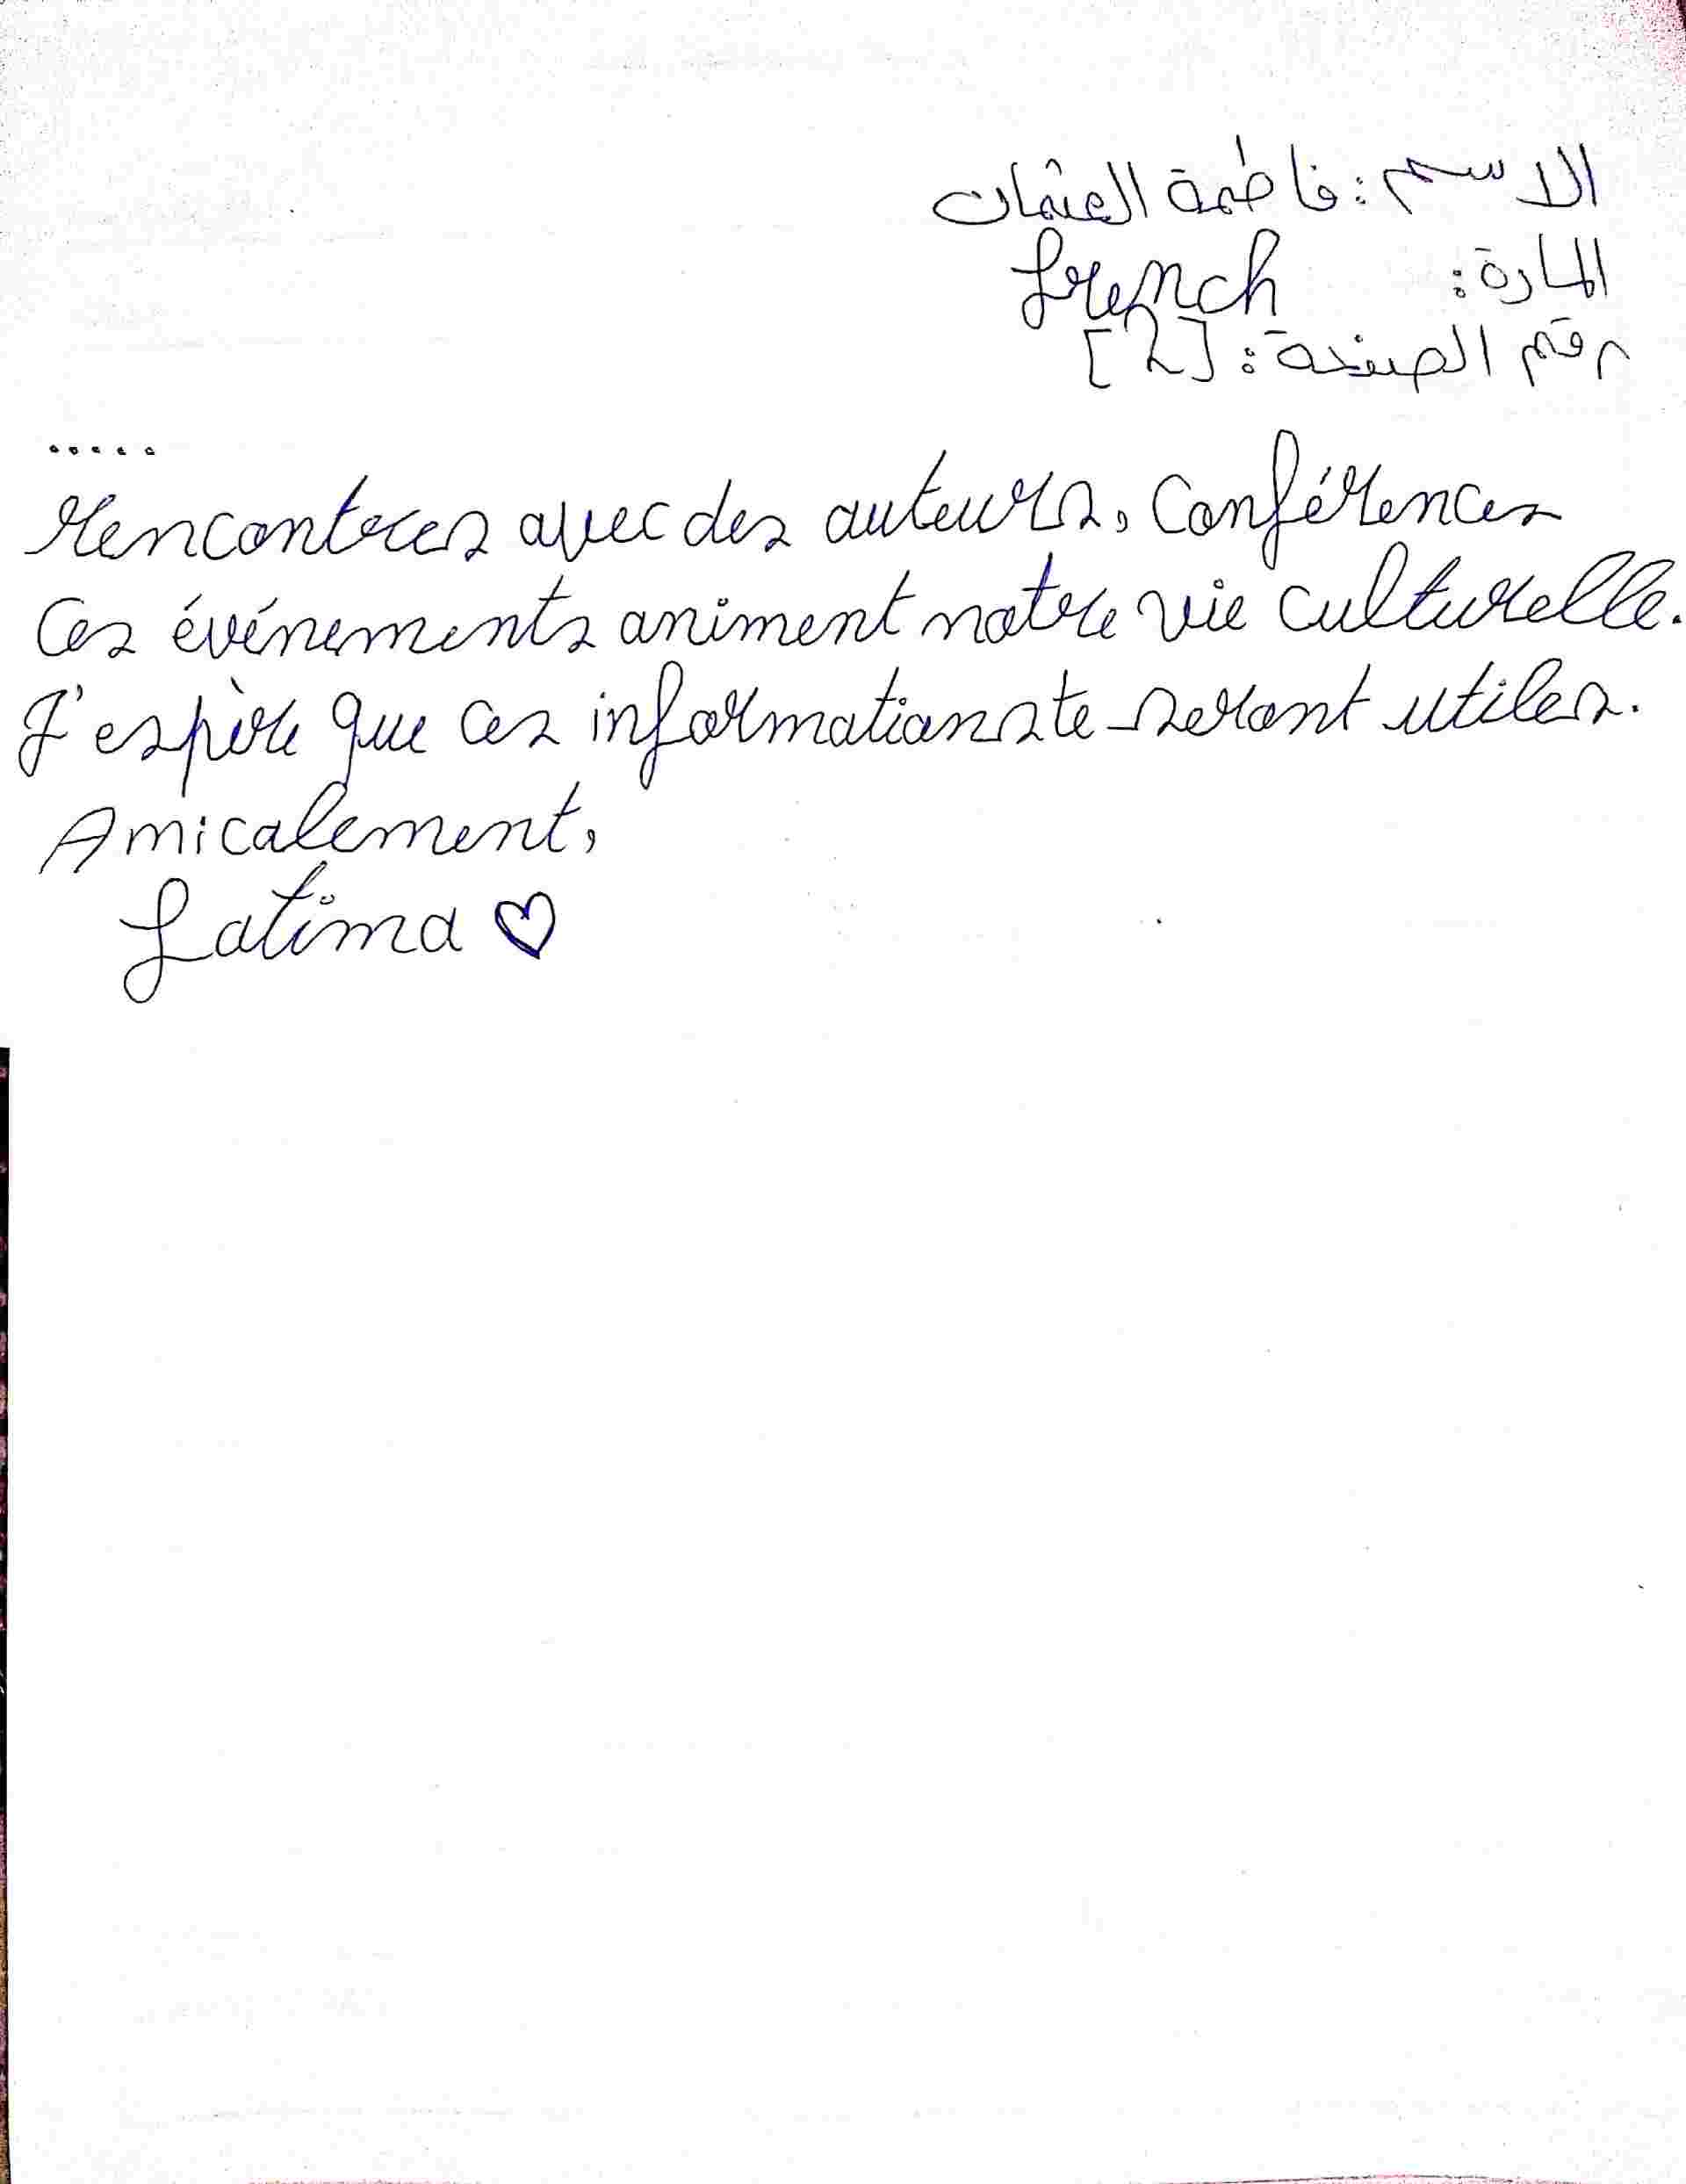 الاسم: فاطمة العثمان
المادة: french
رقم الصفحة: [2]
.....
rencontres avec des auteurs, Conférences
Ces événements animent notre vie culturelle.
J'espère que ces informations te seront utiles.
Amicalement,
Fatima ♡